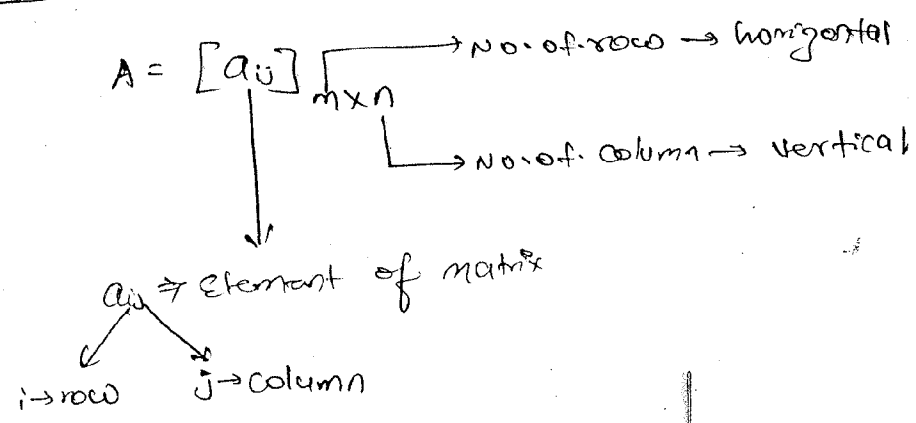 A = [aij] m×n → No. of. row → horizontal
→ No. of. column → vertical
aij ⇒ Element of matrix
i → row j → column